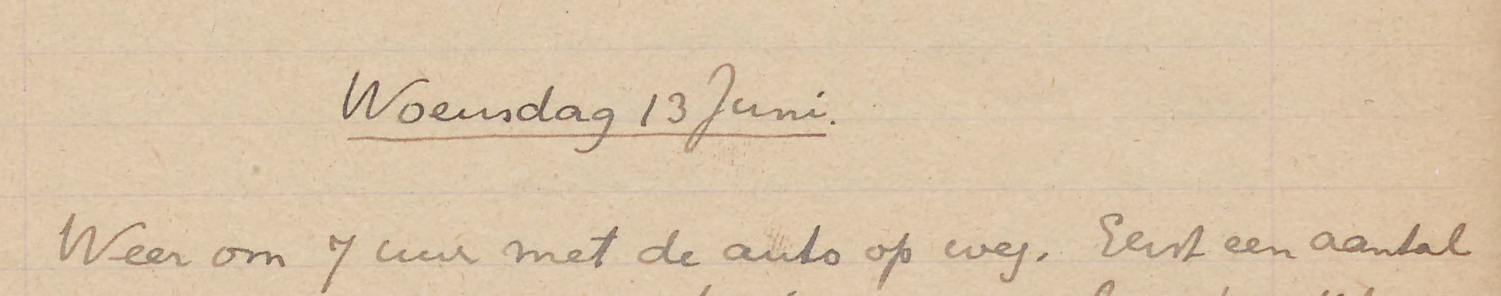 Woensdag 13 Juni.
Weer om 7 uur met de auto op weg. Eerst een aantal